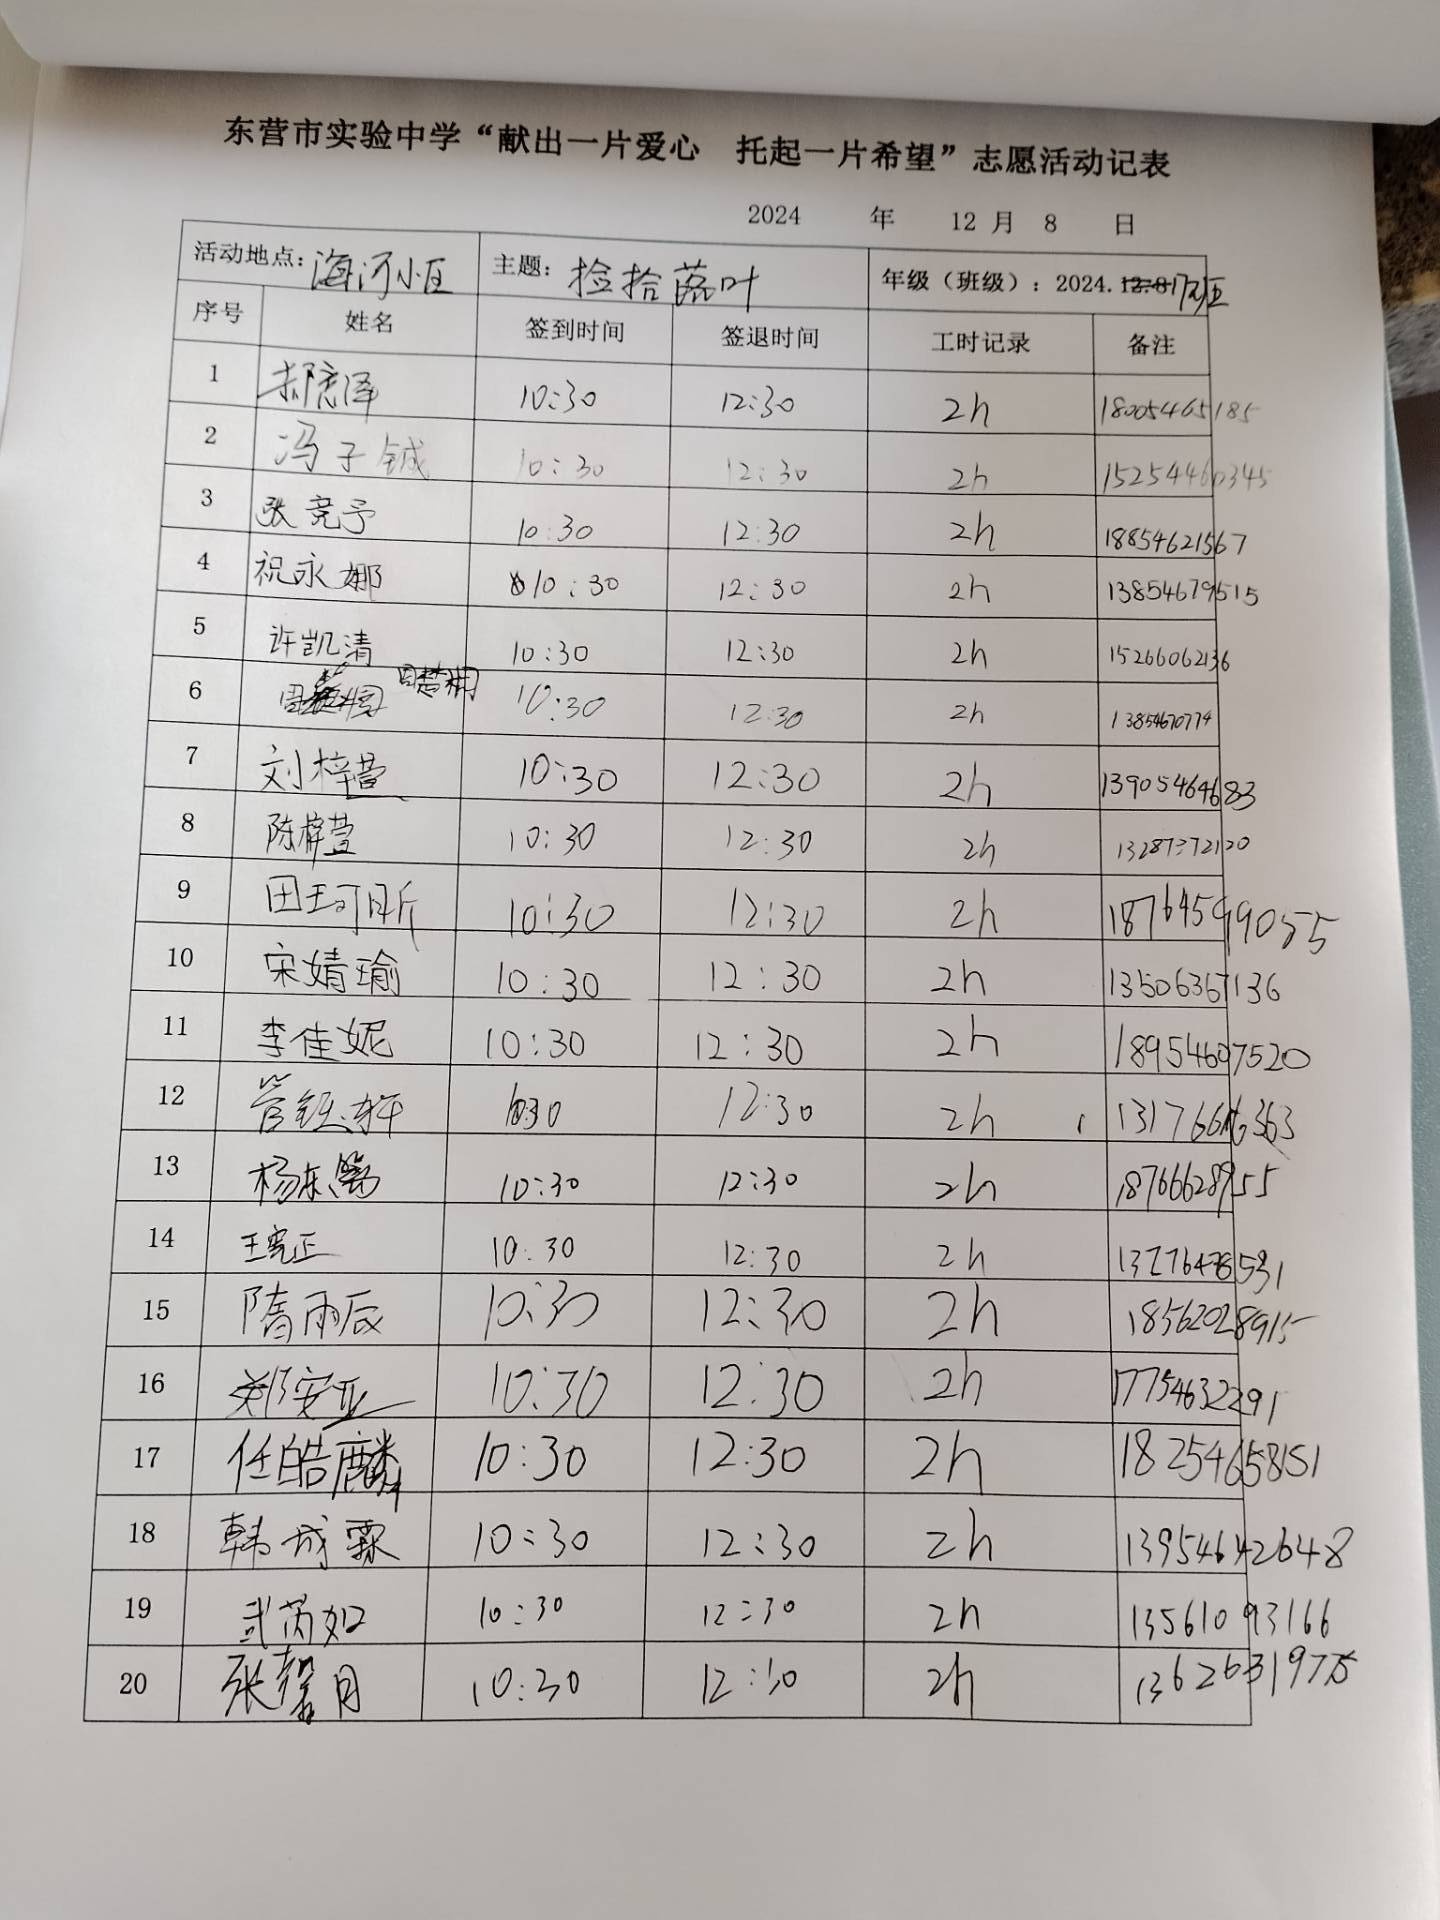 东营市实验中学“献出一片爱心 托起一片希望”志愿活动记表
2024 年 12 月 8 日
活动地点：海河小区 主题：捡拾落叶 年级（班级）：2024.
序号 姓名 签到时间 签退时间 工时记录 备注
1 10:30 12:30 2h 18005465185
2 冯子铖 10:30 12:30 2h 15254460345
3 张竞予 10:30 12:30 2h 18854621567
4 祝永娜 10:30 12:30 2h 13854679515
5 许凯清 10:30 12:30 2h 15266062136
6 10:30 12:30 2h 13854670774
7 刘梓萱 10:30 12:30 2h 13905464683
8 陈梓萱 10:30 12:30 2h 13287372120
9 田珂昕 10:30 12:30 2h 18764599055
10 宋婧瑜 10:30 12:30 2h 13506367136
11 李佳妮 10:30 12:30 2h 18954607520
12 12:30 2h
13 10:30 12:30 2h 18766628955
14 10:30 12:30 2h
15 隋雨辰 10:30 12:30 2h 18562028915
16 郑安亚 10:30 12:30 2h 17754632291
17 任皓麟 10:30 12:30 2h 18254658151
18 韩城霖 10:30 12:30 2h 13954642648
19 武芮如 10:30 12:30 2h 13561093166
20 张馨月 10:30 12:30 2h